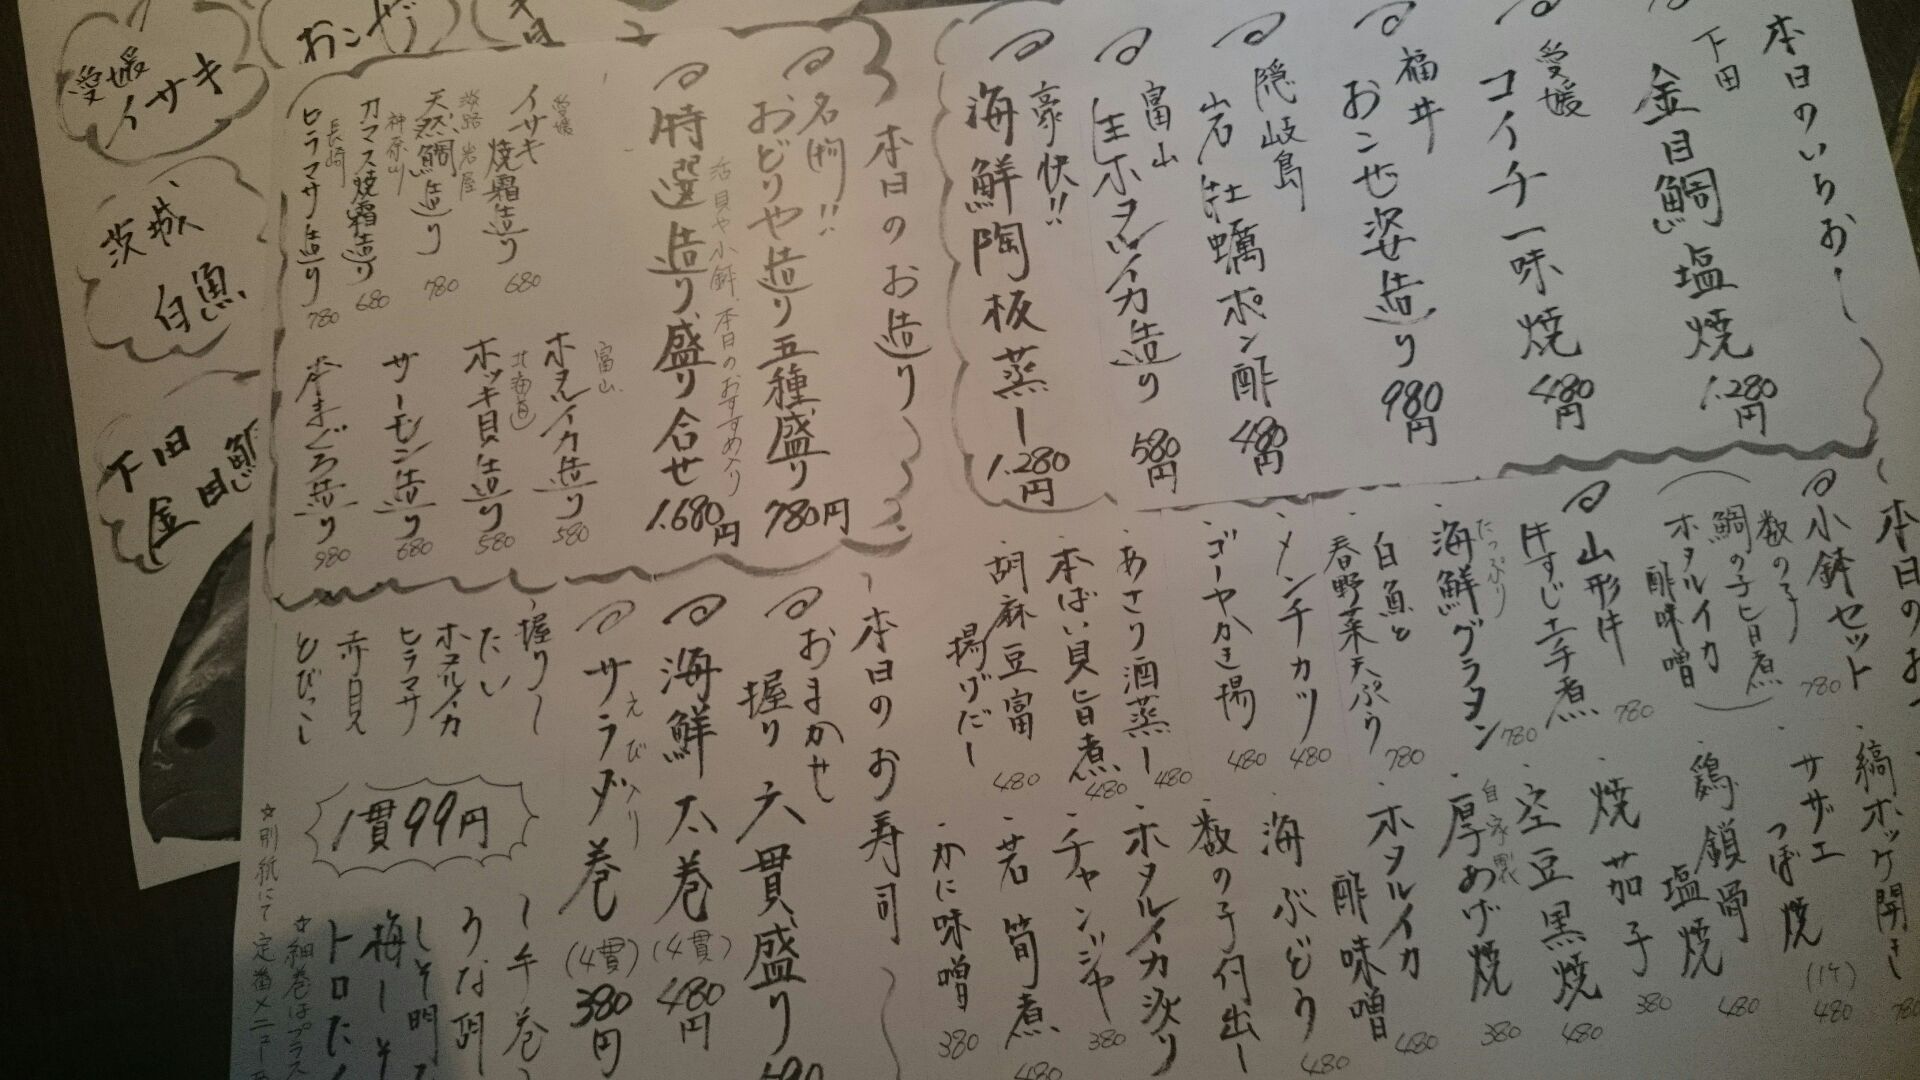 本日のいちおし
下田
金目鯛塩焼
1.280円
愛媛
コイチ一味焼
480円
福井
おこぜ姿造り
980円
隠岐島
岩牡蠣ポン酢
480円
富山
生ホタルイカ造り
580円
豪快!!
海鮮陶板蒸し
1.280円
本日のお造り
名物!!
おどりや造り五種盛り
780円
活貝や小鉢、本日のおすすめ入り
特選造り盛り合せ
1.680円
愛媛
イサキ焼霜造り
680
淡路岩屋
天然鯛造り
780
神奈川
カマス焼霜造り
680
長崎
ヒラマサ造り
780
富山
ホタルイカ造り
580
北海道
ホッキ貝造り
580
サーモン造り
680
本まぐろ造り
980
小鉢セット
数の子
鯛の子旨煮
ホタルイカ酢味噌
780
山形牛
牛すじ土手煮
780
たっぷり
海鮮グラタン
780
白魚と
春野菜天ぷら
780
・メンチカツ
480
・ゴーヤかき揚
480
・あさり酒蒸し
480
・本ばい貝旨煮
480
・胡麻豆富
揚げだし
480
・縞ホッケ開き
・サザエ
つぼ焼
(1ケ)
480
・鶏鎖骨
塩焼
480
・焼茄子
380
・空豆黒焼
480
自家製
・厚あげ焼
380
・ホタルイカ
酢味噌
480
・海ぶどう
480
・数の子付出し
・ホタルイカ沙り
・チャンジャ
380
・若筍煮
480
・かに味噌
380
本日のお寿司
おまかせ
握り六貫盛り
海鮮太巻
(4貫)
480円
えび入り
サラダ巻
(4貫)
380円
握り〜
たい
ホタルイカ
ヒラマサ
赤貝
とびっこ
1貫99円
〜手巻〜
うな胡
☆別紙にて定番メニュー
☆細巻はプラス
愛媛
イサキ
おこぜ
茨城
白魚
下田
金目鯛